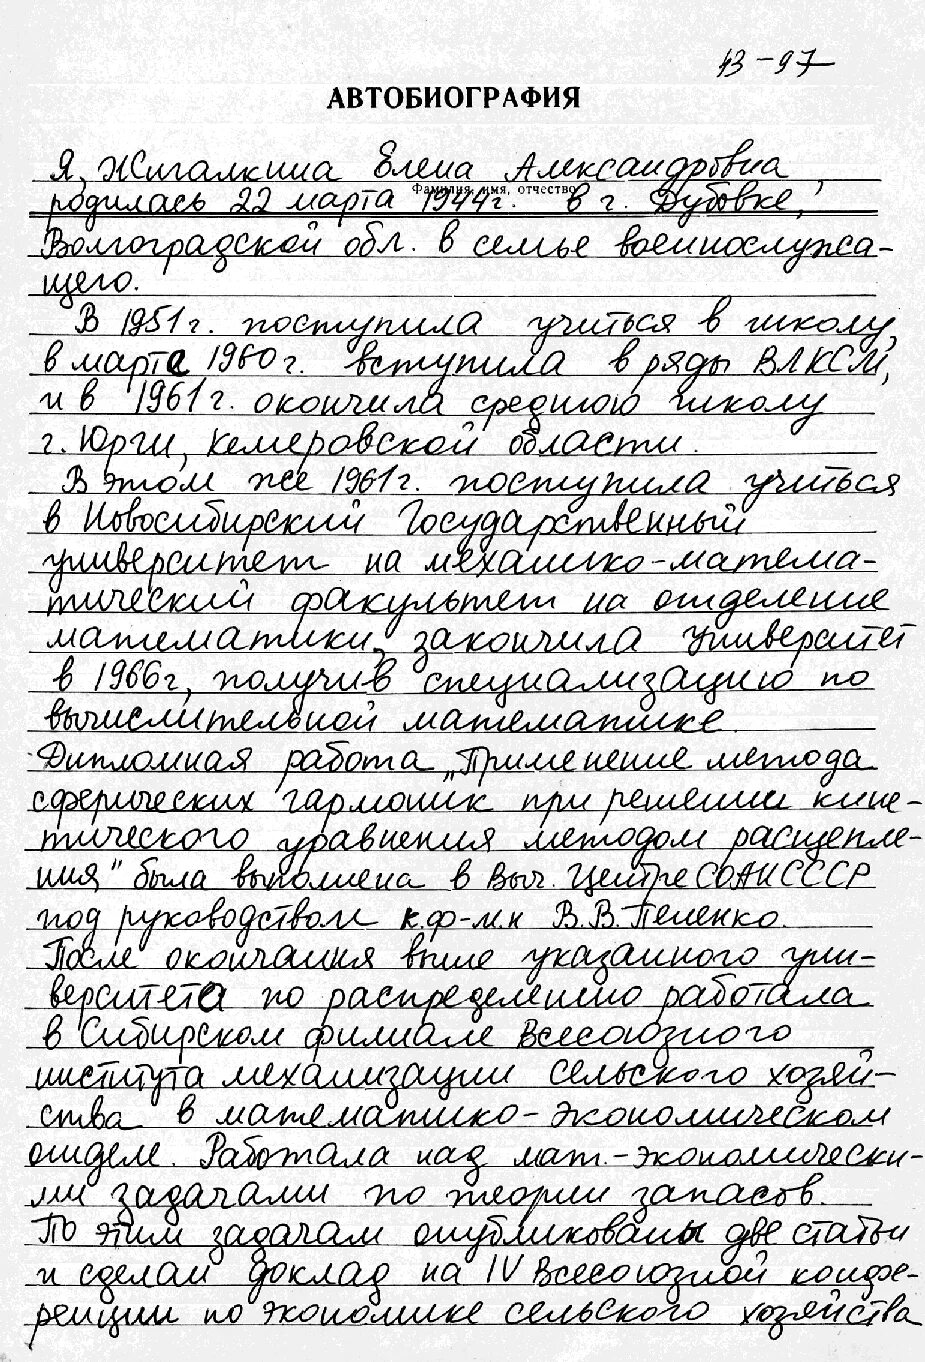 43-97
АВТОБИОГРАФИЯ
Я, Жигалкина Елена Александровна,
Фамилия, имя, отчество
родилась 22 марта 1944г. в г. Дубовке,
Волгоградской обл. в семье военнослужа-
щего.
В 1951г. поступила учиться в школу,
в марте 1960г. вступила в ряды ВЛКСМ,
и в 1961г. окончила среднюю школу
г. Юрги, Кемеровской области.
В этом же 1961г. поступила учиться
в Новосибирский Государственный
университет на механико-матема-
тический факультет на отделение
математики, закончила университет
в 1966г, получив специализацию по
вычислительной математике.
Дипломная работа „Применение метода
сферических гармоник при решении кине-
тического уравнения методом расщепле-
ния" была выполнена в Выч. Центре СОАН СССР
под руководством к.ф-м.н В.В. Пененко.
После окончания выше указанного уни-
верситета по распределению работала
в Сибирском филиале Всесоюзного
института механизации сельского хозяй-
ства в математико-экономическом
отделе. Работала над мат.-экономически-
ми задачами по теории запасов.
По этим задачам опубликованы две статьи
и сделан доклад на IV Всесоюзной конфе-
ренции по экономике сельского хозяйства